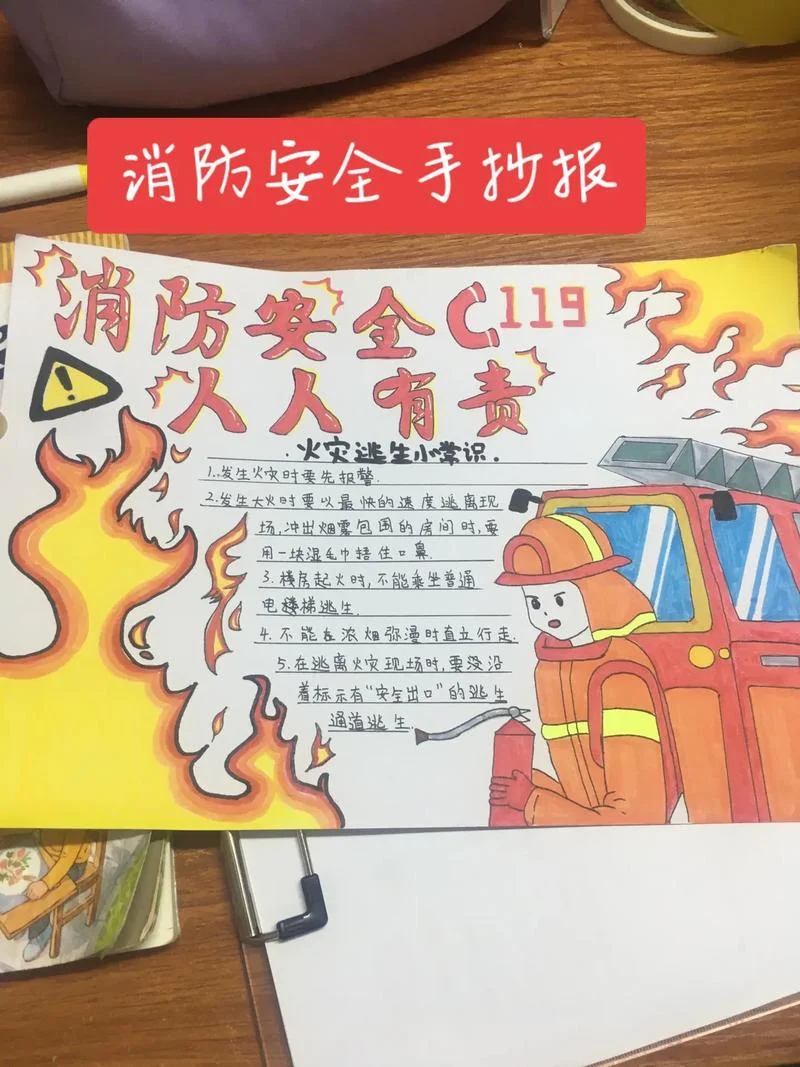 消防安全手抄报
消防安全119
人人有责
火灾逃生小常识.
1.发生火灾时要先报警.
2.发生大火时要以最快的速度逃离现
场,冲出烟雾包围的房间时,要
用一块湿毛巾捂住口鼻.
3.楼房起火时,不能乘坐普通
电楼梯逃生.
4.不能在浓烟弥漫时直立行走.
5.在逃离火灾现场时,要没沿
着标示有“安全出口”的逃生
通道逃生.